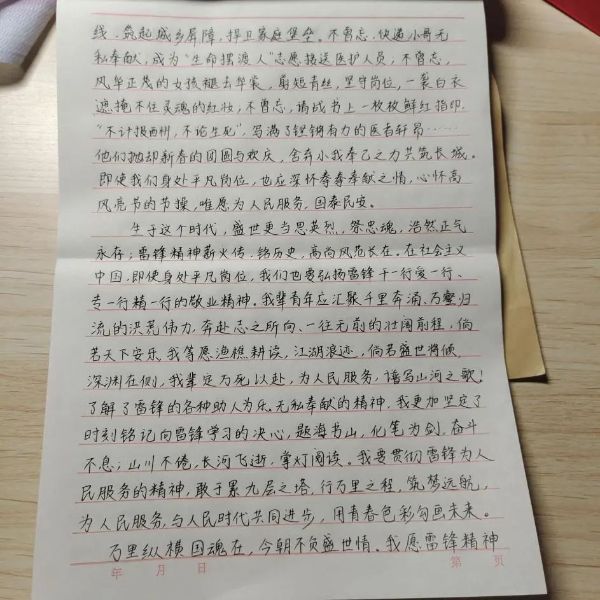 线、筑起城乡屏障，捍卫家庭堡垒。不曾忘，快递小哥无
私奉献，成为“生命摆渡人”志愿接送医护人员，不曾忘，
风华正茂的女孩褪去华裳，剪短青丝，坚守岗位，一袭白衣
遮掩不住灵魂的红妆，不曾忘，请战书上一枚枚鲜红指印，
“不计报酬，不论生死”，写满了铿锵有力的医者轩昂……
他们抛却新春的团圆与欢庆，舍弃小我奉己之力共筑长城。
即使我们身处平凡岗位，也应深怀眷眷奉献之情，心怀高
风亮节的节操，唯愿为人民服务，国泰民安。
生于这个时代，盛世更当思英烈，祭忠魂，浩然正气
永存；雷锋精神薪火传，铭历史，高尚风范长在。在社会主义
中国，即使身处平凡岗位，我们也要弘扬雷锋干一行爱一行、
专一行精一行的敬业精神。我辈青年应汇聚千里奔涌、万壑归
流的洪荒伟力，奔赴志之所向、一往无前的壮阔前程，倘
若天下安乐，我等愿渔樵耕读，江湖浪迹，倘若盛世将倾，
深渊在侧，我辈定万死以赴，为人民服务，谱写山河之歌！
了解了雷锋的各种助人为乐、无私奉献的精神，我更加坚定了
时刻铭记向雷锋学习的决心，题海书山，化笔为剑，奋斗
不息；山川不倦，长河飞逝，掌灯阅读。我要贯彻雷锋为人
民服务的精神，敢于累九层之塔，行万里之程，筑梦远航，
为人民服务，与人民时代共同进步，用青春色彩勾画未来。
万里纵横国魂在，今朝不负盛世情。我愿雷锋精神
年 月 日 第 页